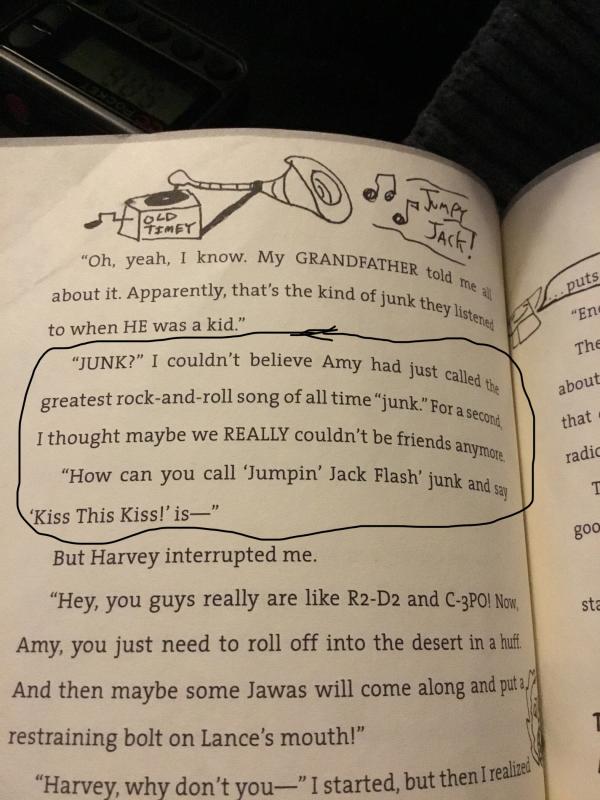 OLD
TIMEY
JUMPY
JACK!
“Oh, yeah, I know. My GRANDFATHER told me all
about it. Apparently, that’s the kind of junk they listened
to when HE was a kid.”
“JUNK?” I couldn’t believe Amy had just called the
greatest rock-and-roll song of all time “junk.” For a second,
I thought maybe we REALLY couldn’t be friends anymore.
“How can you call ‘Jumpin’ Jack Flash’ junk and say
‘Kiss This Kiss!’ is—”
But Harvey interrupted me.
“Hey, you guys really are like R2-D2 and C-3PO! Now,
Amy, you just need to roll off into the desert in a huff.
And then maybe some Jawas will come along and put a
restraining bolt on Lance’s mouth!”
“Harvey, why don’t you—” I started, but then I realized
...puts
The
about
that
radio
goo
sta